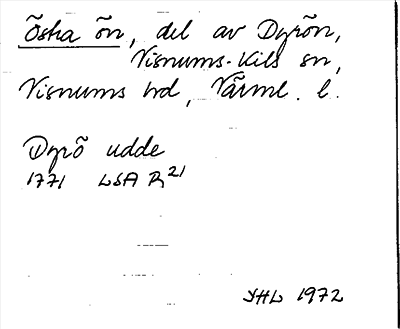 Östra ön, del av Dyrön,
Visnums-Kils sn,
Visnums hd, Värml. l.
Dyrö udde
1771 LSA R²¹
YHL 1972